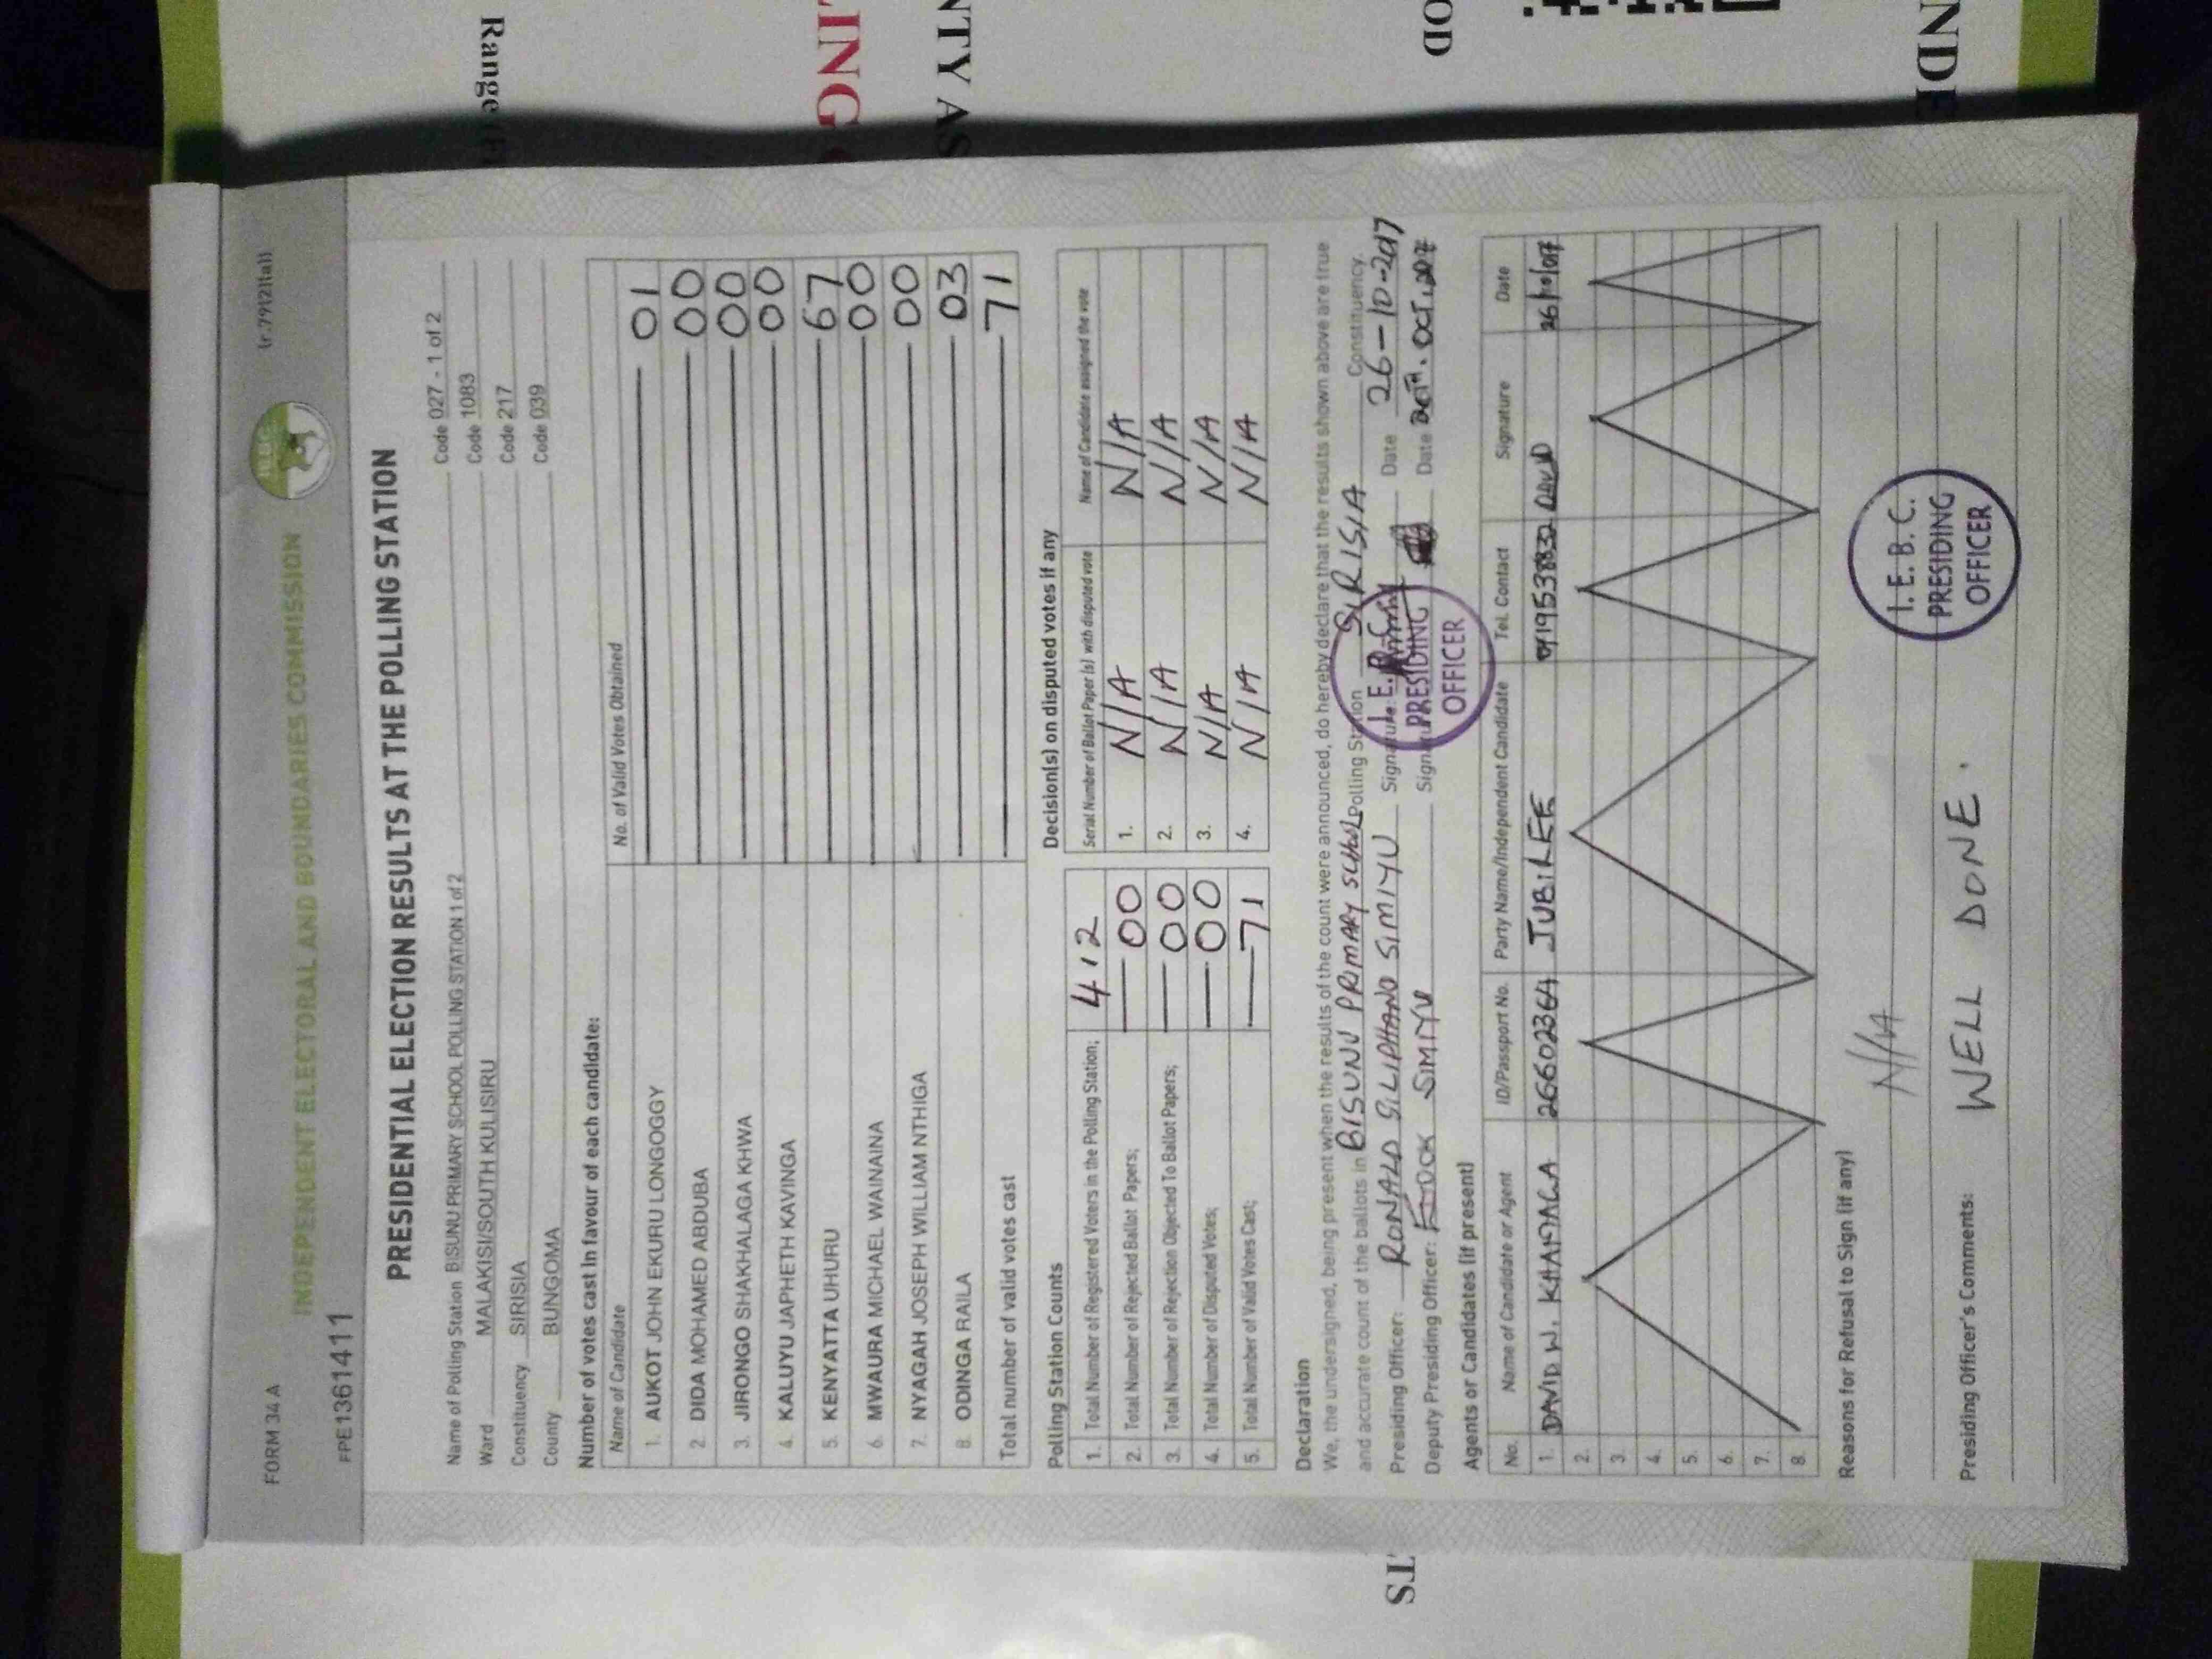 Range
LING
NTY AS
OD
NDE
TS
FORM 34 A
(r.79(2)(a))
INDEPENDENT ELECTORAL AND BOUNDARIES COMMISSION
I.E.B.C
FPE1361411
PRESIDENTIAL ELECTION RESULTS AT THE POLLING STATION
Name of Polling Station BISUNU PRIMARY SCHOOL POLLING STATION 1 of 2 Code 027 - 1 of 2
Ward MALAKISI/SOUTH KULISIRU Code 1083
Constituency SIRISIA Code 217
County BUNGOMA Code 039
Number of votes cast in favour of each candidate:
Name of Candidate No. of Valid Votes Obtained
1. AUKOT JOHN EKURU LONGOGGY 01
2. DIDA MOHAMED ABDUBA 00
3. JIRONGO SHAKHALAGA KHWA 00
4. KALUYU JAPHETH KAVINGA 00
5. KENYATTA UHURU 67
6. MWAURA MICHAEL WAINAINA 00
7. NYAGAH JOSEPH WILLIAM NTHIGA 00
8. ODINGA RAILA 03
Total number of valid votes cast 71
Polling Station Counts
1. Total Number of Registered Voters in the Polling Station; 412
2. Total Number of Rejected Ballot Papers; 00
3. Total Number of Rejection Objected To Ballot Papers; 00
4. Total Number of Disputed Votes; 00
5. Total Number of Valid Votes Cast; 71
Decision(s) on disputed votes if any
Serial Number of Ballot Paper(s) with disputed vote Name of Candidate assigned the vote
1. N/A N/A
2. N/A N/A
3. N/A N/A
4. N/A N/A
Declaration
We, the undersigned, being present when the results of the count were announced, do hereby declare that the results shown above are true
and accurate count of the ballots in BISUNU PRIMARY SCHOOL Polling Station SIRISIA Constituency.
Presiding Officer: RONALD SILIPHANO SIMIYU Signature: Date 26-10-2017
Deputy Presiding Officer: SIMIYU Signature Date OCT.
I.E.
PRESIDING
OFFICER
Agents or Candidates (if present)
No. Name of Candidate or Agent ID/Passport No. Party Name/Independent Candidate Tel. Contact Signature Date
1. DAVID W. 26602364 JUBILEE DAVID
2.
3.
4.
5.
6.
7.
8.
Reasons for Refusal to Sign (if any)
N/A
Presiding Officer's Comments:
WELL DONE.
I.E.B.C.
PRESIDING
OFFICER